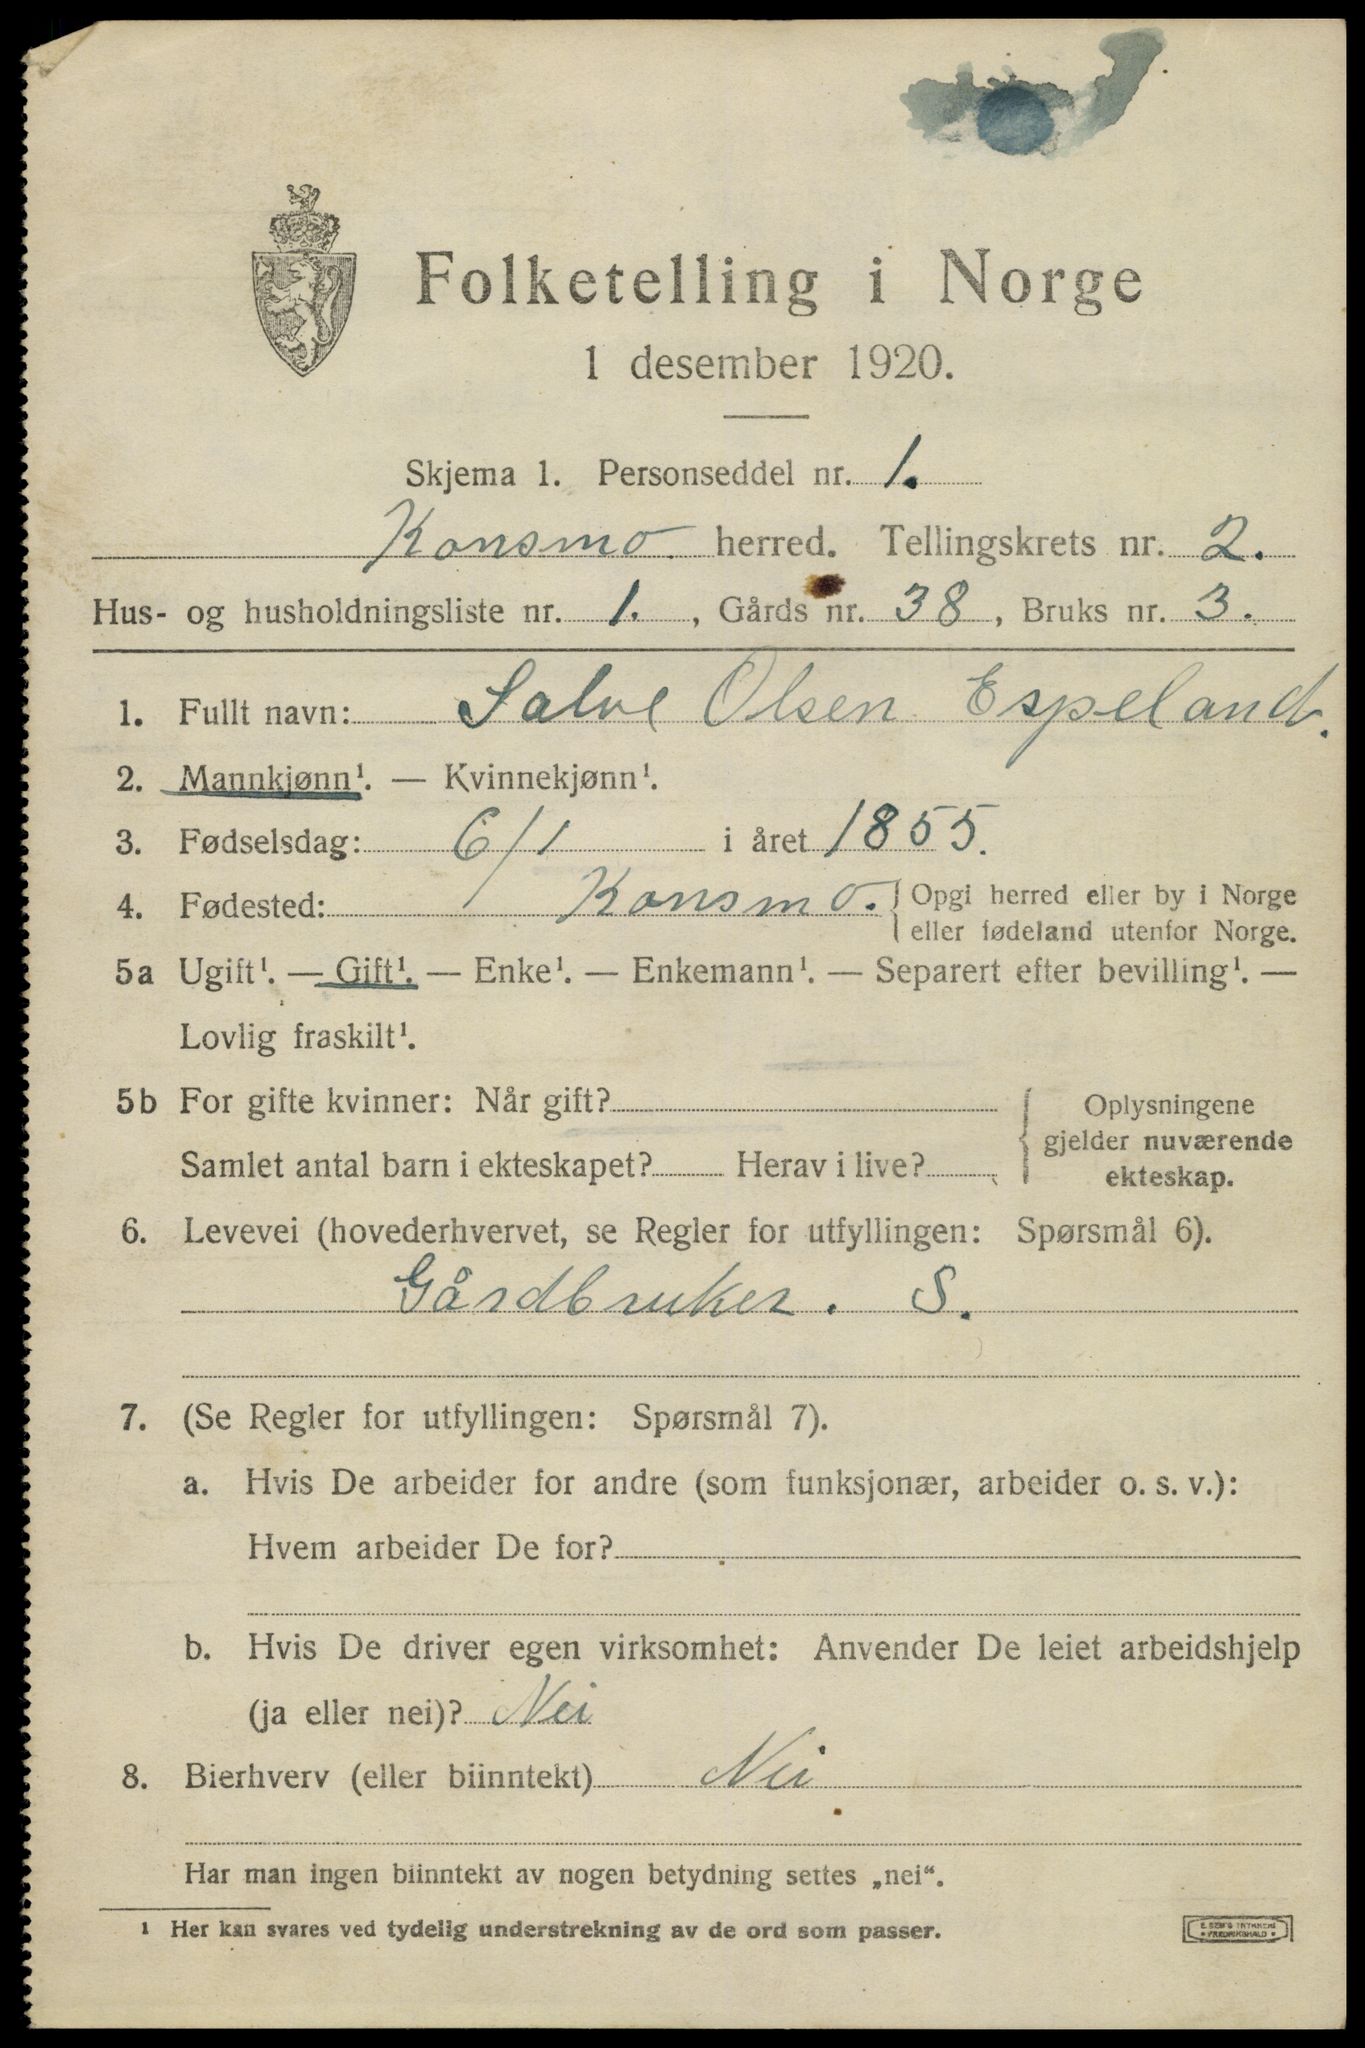 Folketelling i Norge
1 desember 1920.
Skjema 1. Personseddel nr. 1.
Konsmo. herred. Tellingskrets nr. 2.
Hus- og husholdningsliste nr. 1., Gårds nr. 38, Bruks nr. 3.
1. Fullt navn: Salve Olsen Espeland.
2. Mannkjønn¹. — Kvinnekjønn¹.
3. Fødselsdag: 6/1 i året 1855.
4. Fødested: Konsmo. { Opgi herred eller by i Norge
eller fødeland utenfor Norge.
5a Ugift¹. — Gift¹. — Enke¹. — Enkemann¹. — Separert efter bevilling¹. —
Lovlig fraskilt¹.
5b For gifte kvinner: Når gift?
Samlet antal barn i ekteskapet? Herav i live?
{ Oplysningene
gjelder nuværende
ekteskap.
6. Levevei (hovederhvervet, se Regler for utfyllingen: Spørsmål 6).
Gårdbruker. S.
7. (Se Regler for utfyllingen: Spørsmål 7).
a. Hvis De arbeider for andre (som funksjonær, arbeider o. s. v.):
Hvem arbeider De for?
b. Hvis De driver egen virksomhet: Anvender De leiet arbeidshjelp
(ja eller nei)? Nei
8. Bierhverv (eller biinntekt) Nei
Har man ingen biinntekt av nogen betydning settes „nei“.
¹ Her kan svares ved tydelig understrekning av de ord som passer.
FREDRIKSHALD